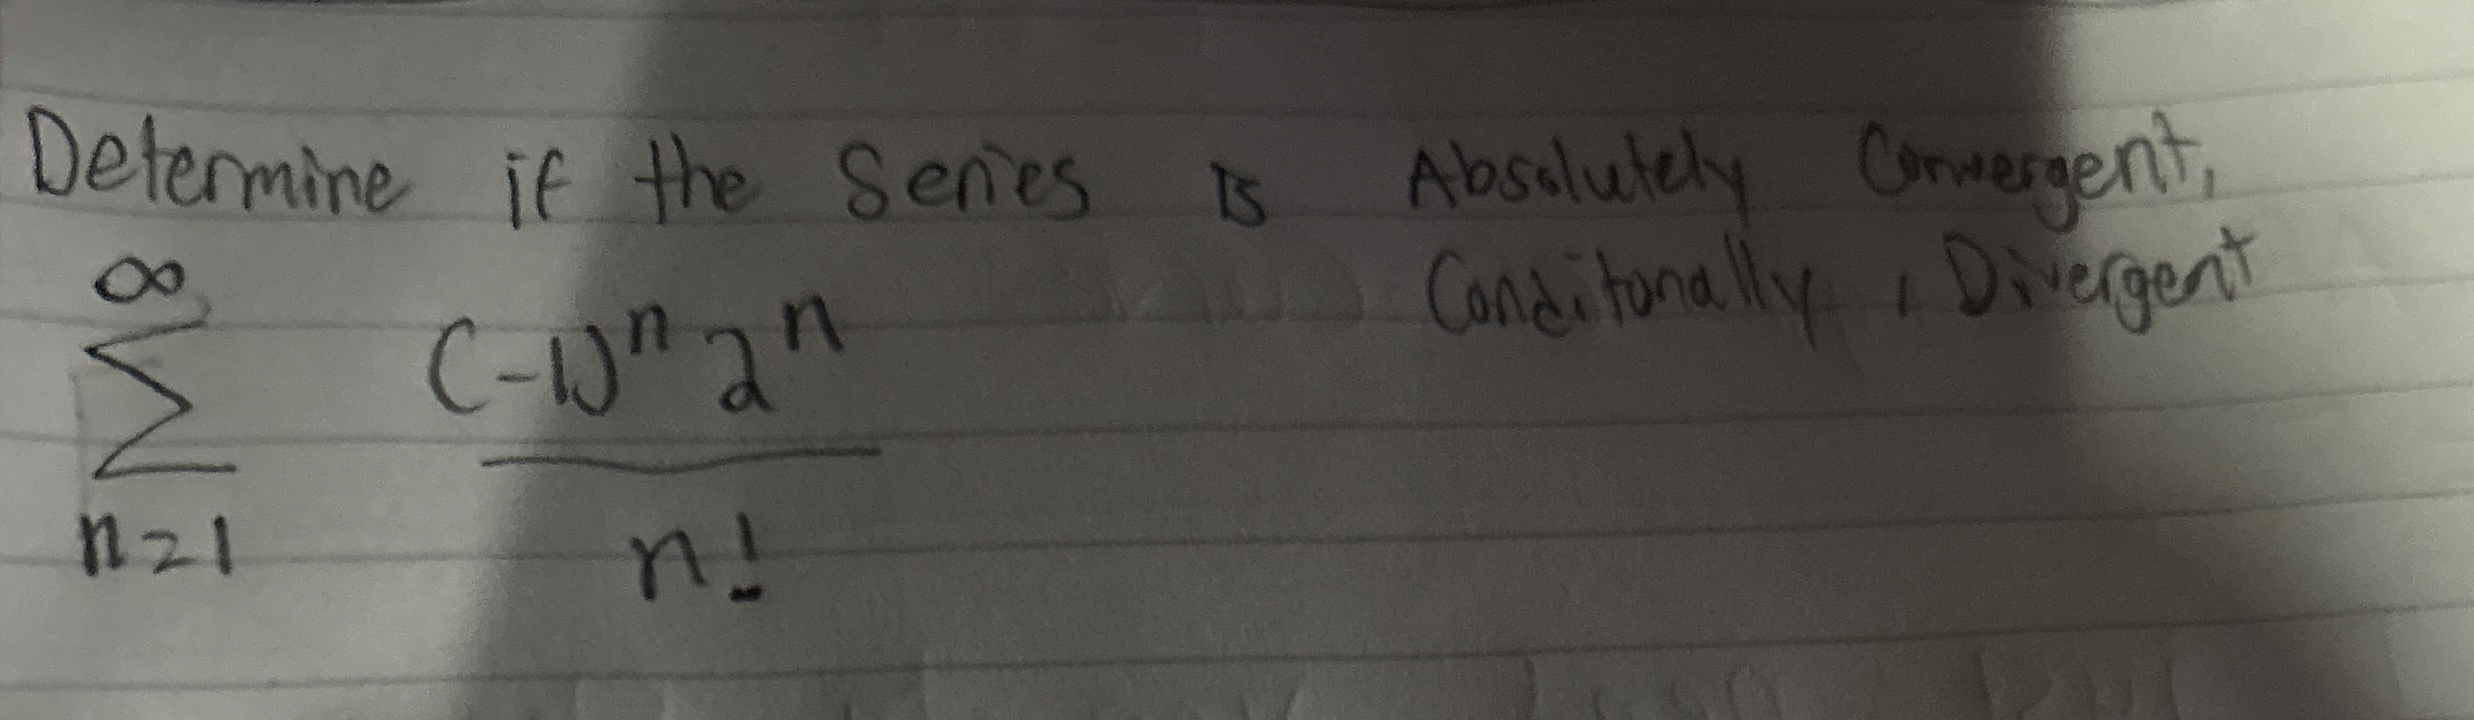 Determine if the Series is Absolutely Convergent,
Conditonally, Divergent
∞
∑ (-1)^n 2^n
n=1 n!